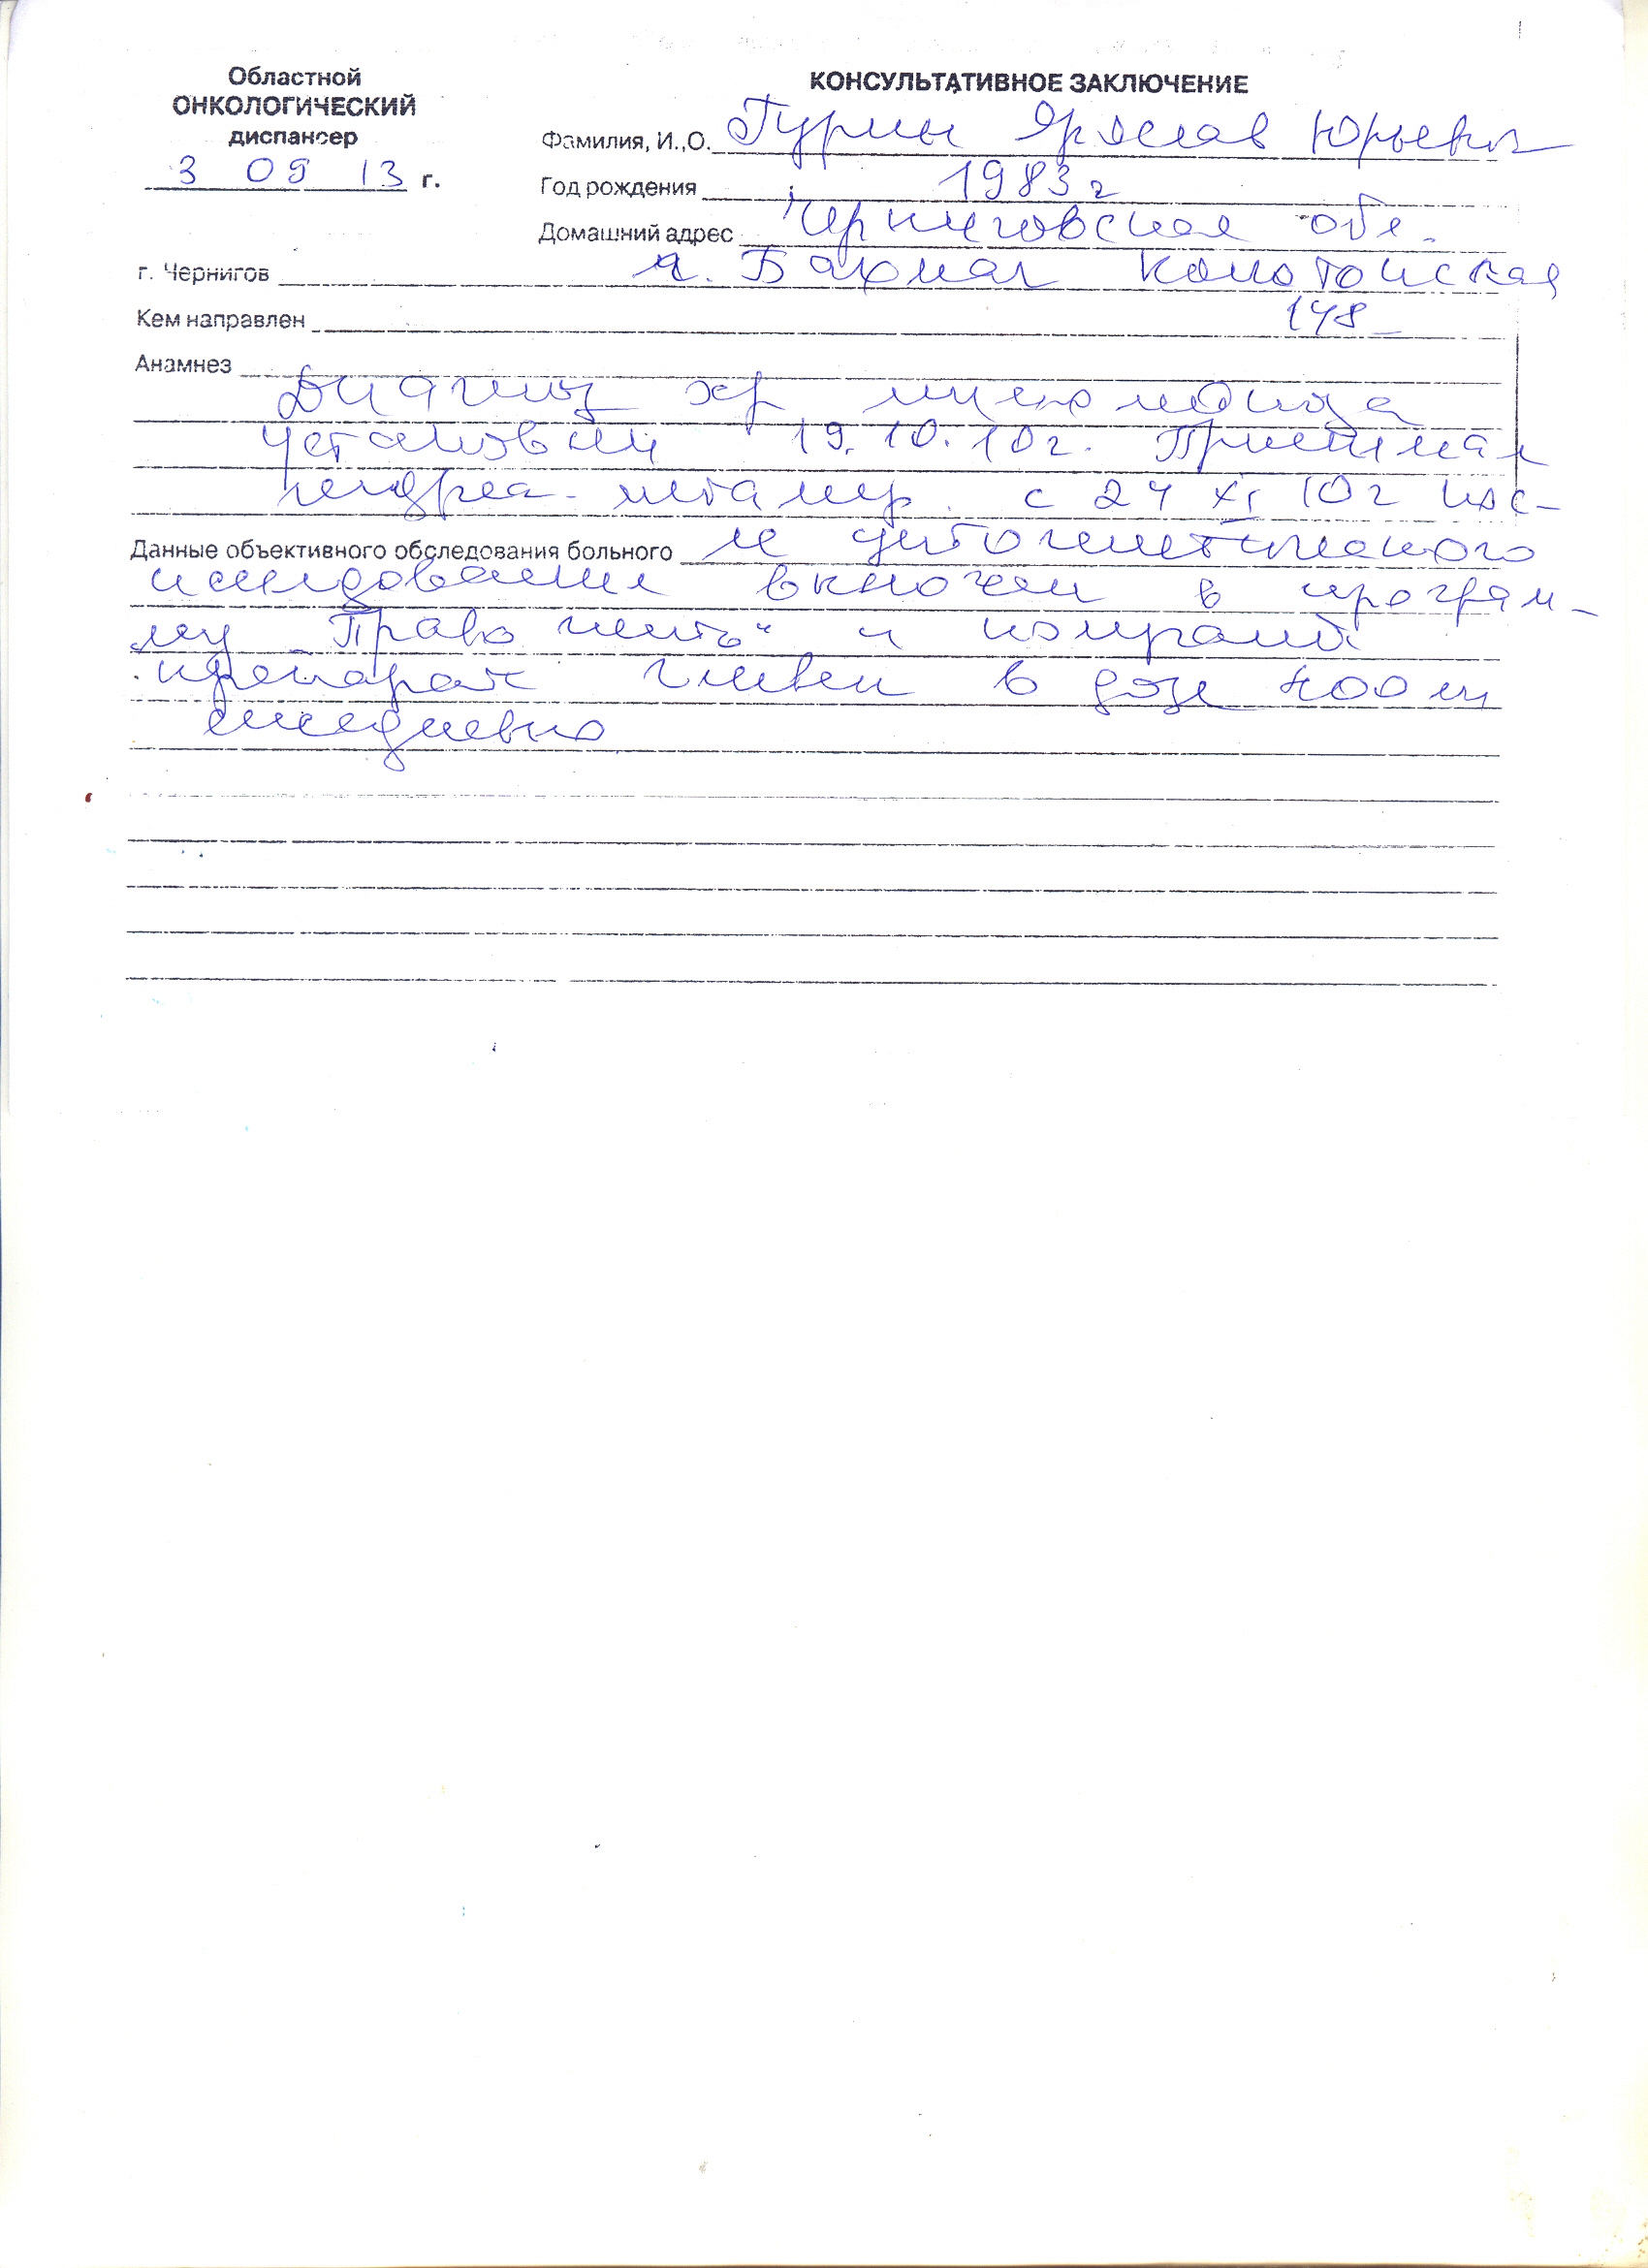 Областной
ОНКОЛОГИЧЕСКИЙ
диспансер
3 09 13 г.
КОНСУЛЬТАТИВНОЕ ЗАКЛЮЧЕНИЕ
Фамилия, И.,О. Гурин Ярослав Юрьевич
Год рождения 1983 г
Домашний адрес Черниговская обл.
г. Чернигов г. Бахмач Конотопская
148
Кем направлен
Анамнез
Диагноз хр миелолейкоз
установлен 19.10.10г. Принимал
гидреа с 24 XI 10г пос-
Данные объективного обследования больного ле цитогенетического
исследования включен в програм-
му „Право жить“ и
препарат гливек в дозе 400 мг
ежедневно